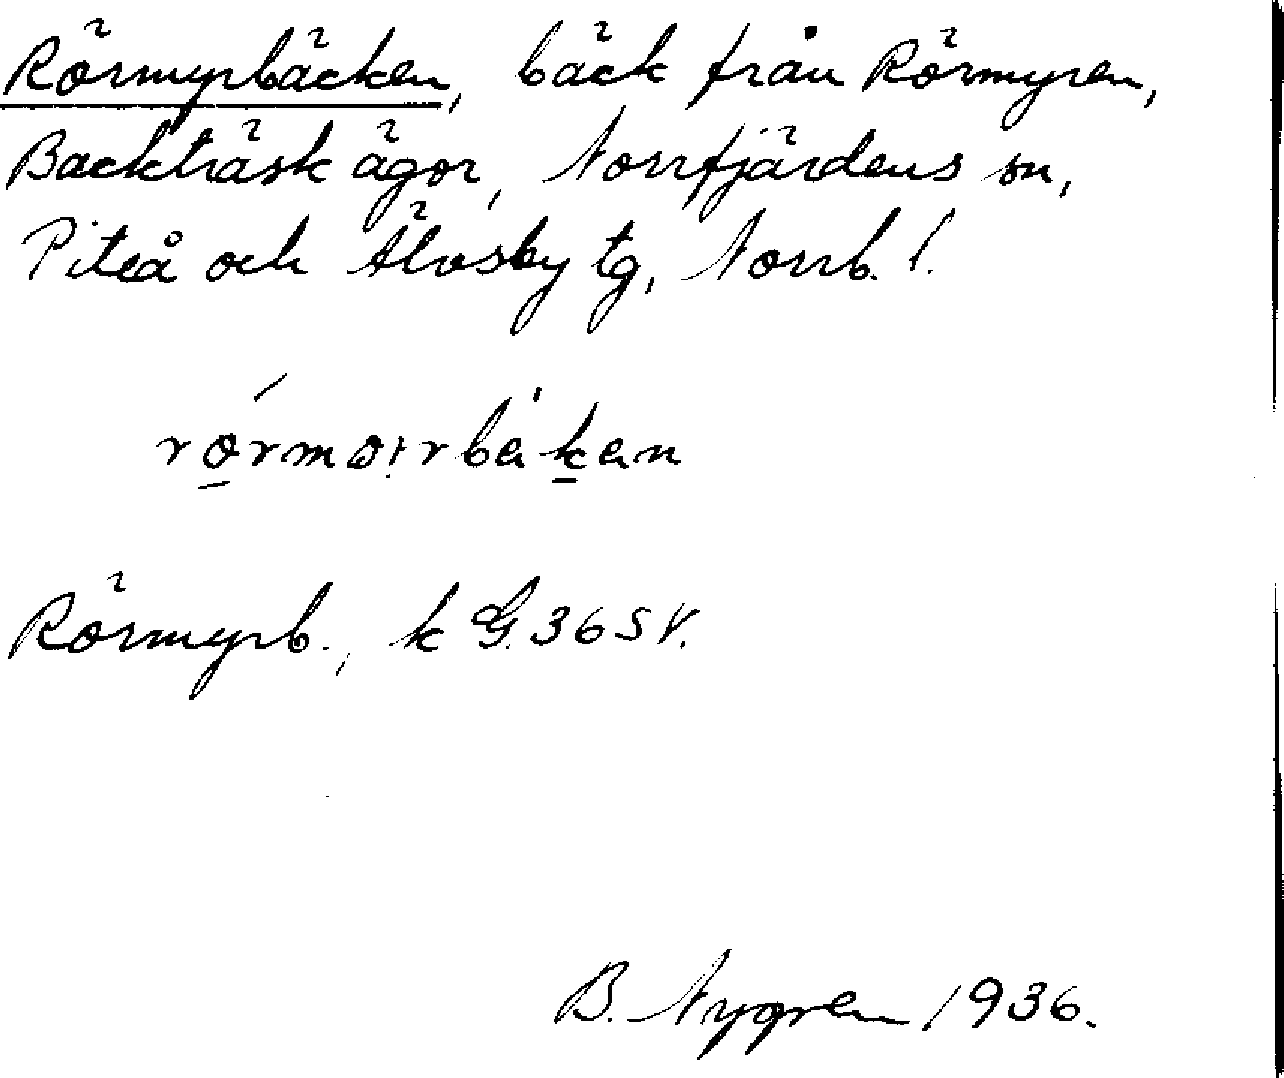 Rörmyrbäcken, bäck från Rörmyren,
Backträsk ägor, Norrfjärdens sn,
Piteå och Älvsby tg, Norrb. l.
Rörmyrb., k G. 36 SV.
B. Nygren 1936.